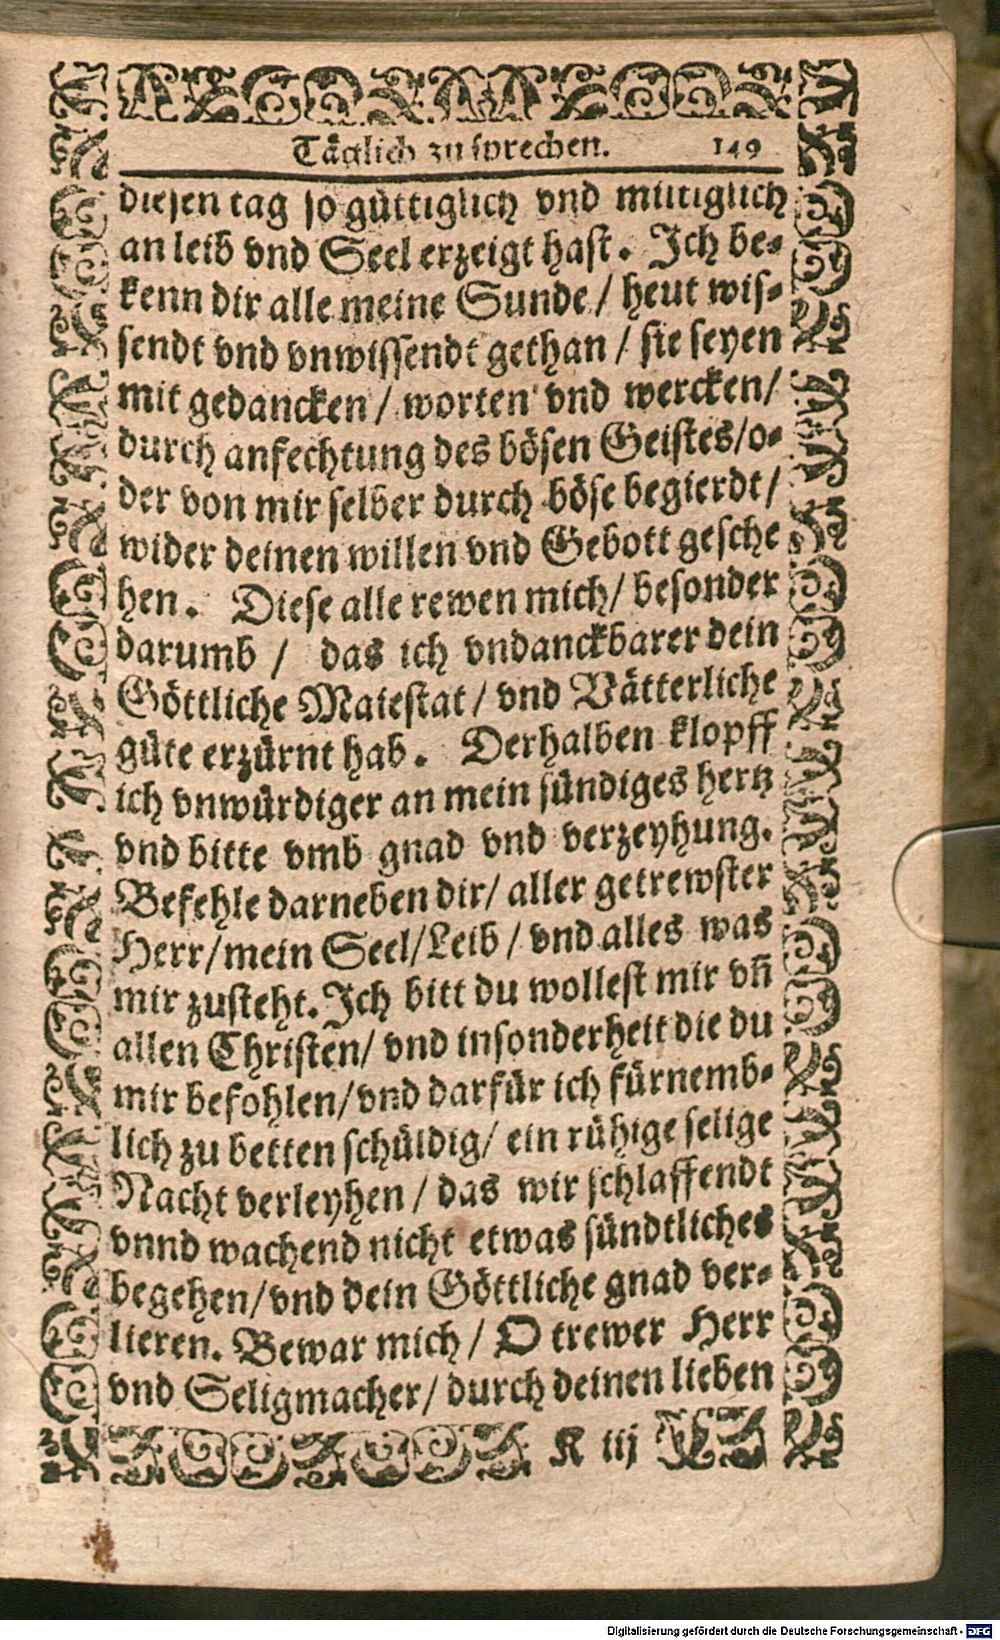 Täglich zu sprechen. 149
diesen tag so güttiglich vnd miltiglich
an leib vnd Seel erzeigt hast. Ich be-
kenn dir alle meine Sunde / heut wis-
sendt vnd vnwissendt gethan / sie seyen
mit gedancken / worten vnd wercken /
durch anfechtung des bösen Geistes/o-
der von mir selber durch böse begierdt /
wider deinen willen vnd Gebott gesche
hen. Diese alle rewen mich / besonder
darumb / das ich vndanckbarer dein
Göttliche Maiestat / vnd Vätterliche
güte erzürnt hab. Derhalben klopff
ich vnwürdiger an mein sündiges hertz
vnd bitte vmb gnad vnd verzeyhung.
Befehle darneben dir / aller getrewster
Herr/mein Seel/Leib / vnd alles was
mir zusteht. Ich bitt du wollest mir vñ
allen Christen / vnd insonderheit die du
mir befohlen/vnd darfür ich fürnemb-
lich zu betten schüldig / ein rühige selige
Nacht verleyhen / das wir schlaffendt
vnnd wachend nicht etwas sündtliches
begehen/vnd dein Göttliche gnad ver-
lieren. Bewar mich / O trewer Herr
vnd Seligmacher / durch deinen lieben
K iij
Digitalisierung gefördert durch die Deutsche Forschungsgemeinschaft - DFG